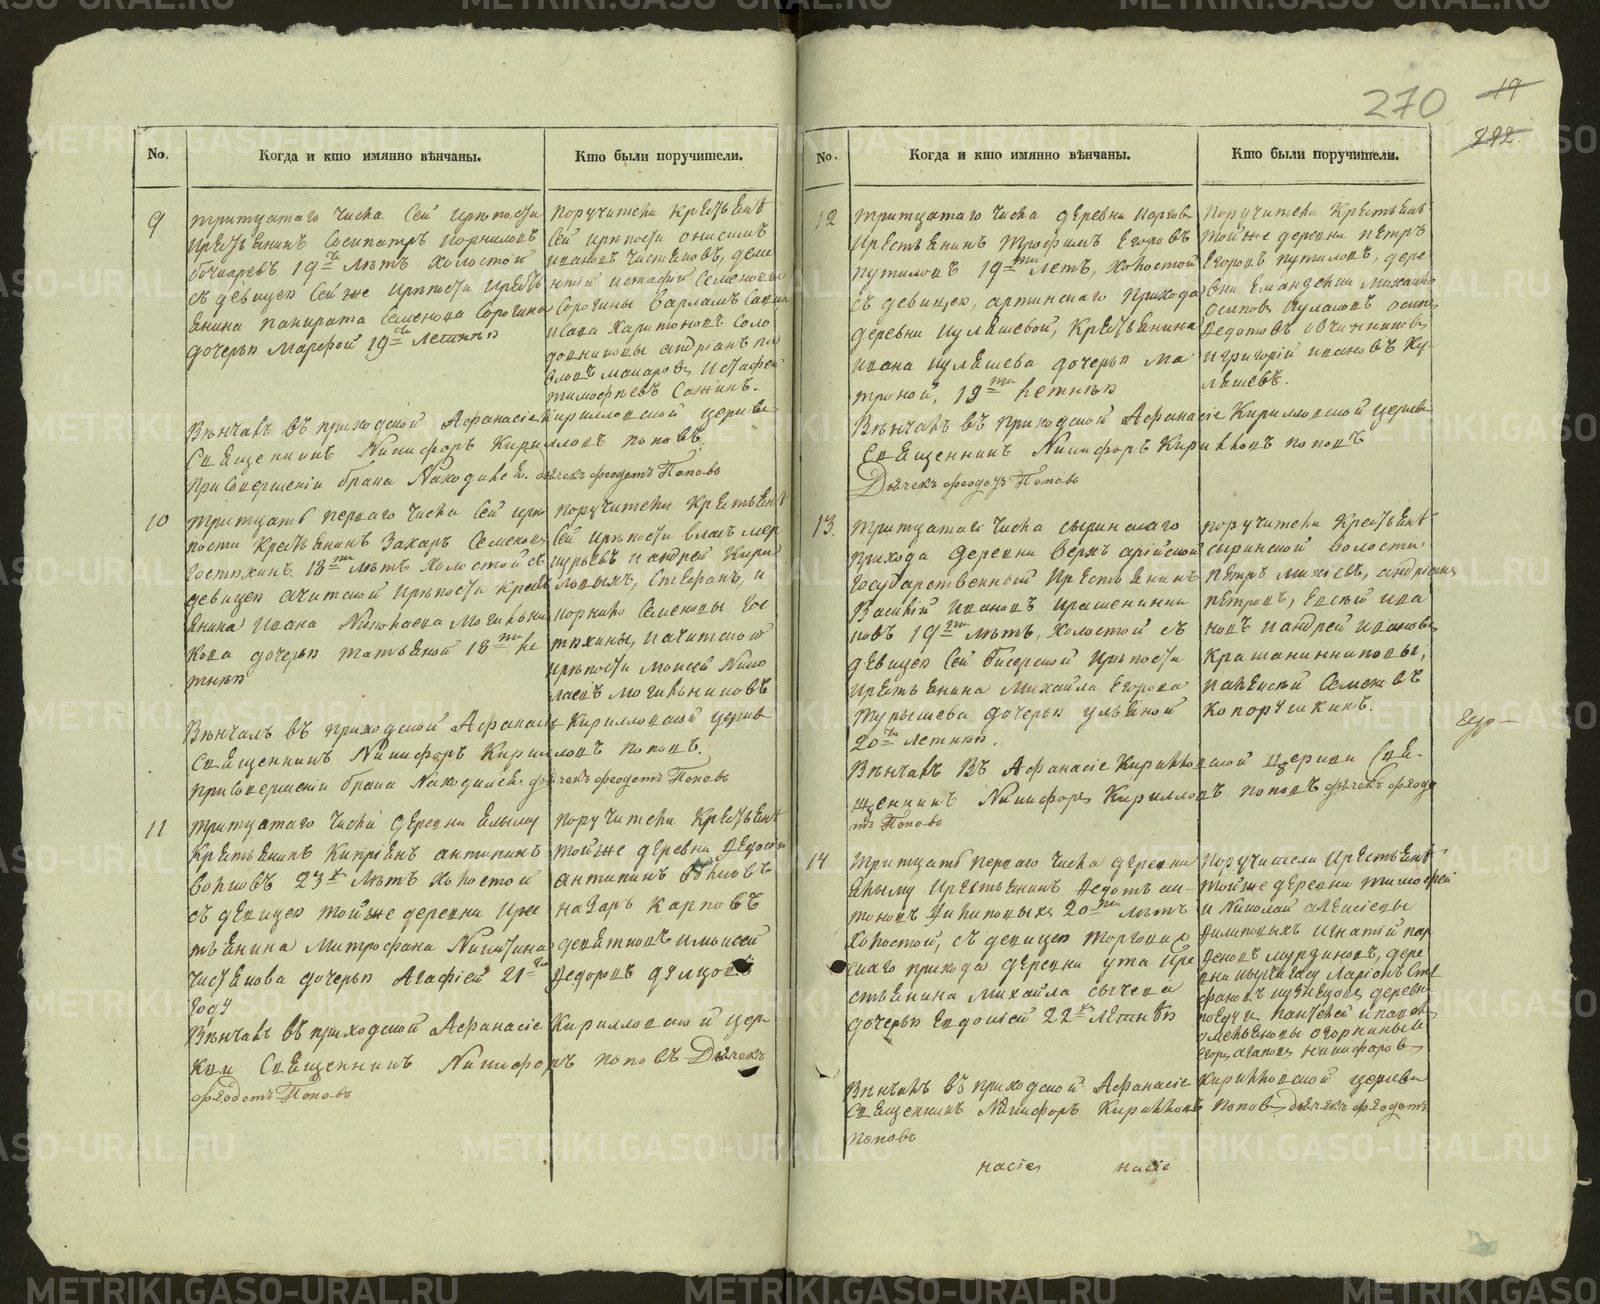 270
19
292
No.
Когда и кто имянно вѣнчаны.
Кто были поручители.
9
тритцатаго числа Сей крѣпости
крестьенинъ Сосипатръ Корниловъ
бочкаревъ 19ти лѣтъ холостой
съ девицею сей же крѣпости кресть
енина панкрата Семенова Сорогина
дочерью Марѳой 19ти летнею
поручители крестьене
сей крѣпости онисимъ
ивановъ Чистековъ, деме
Сорогины варламъ Савин
Исакъ Харитоновъ Соло
довниковы андреанъ па
вловъ макаровъ, Истафей
тимофѣевъ Сажинъ.
Вѣнчалъ въ приходской Афанасіе Кирилловской церкве
Священникъ Никифоръ Кирилловъ поповъ.
При совершеніи брака Находился дьячекъ феодотъ Поповъ
10
тритцать перваго числа сей крѣ
пости крестьенинъ Захаръ Семеновъ
гостюхинъ 18ти лѣтъ холостой съ
девицею ачитской крѣпости кресть
енина Ивана Николаева могильни
кова дочерью татьеной 18ти ле
тнею
поручители крестьене
сей крѣпости власъ мер
курьевъ и андрей Кири
ловыхъ, Стефанъ, и
корнило Семеновы гос
тюхины, и ачитской
крѣпости моисей Нико
лаевъ могильниковъ
Вѣнчалъ въ приходской Афанасіе Кирилловской церкве
Священникъ Никифоръ Кирилловъ поповъ.
При Совершеніи брака Находился дьячекъ феодотъ Поповъ
11
тритцатаго числа деревни елыму
крестьенинъ Кипріенъ антипинъ
волковъ 23х лѣтъ холостой
съ девицею той же деревни кре
тьенина Митрофана Никитина
чистекова дочерью Агафіей 21го
году
поручители крестьене
той же деревни Ѳедосѣй
антипинъ волковъ
назаръ карповъ
девятковъ и моисей
Ѳедоровъ
Вѣнчалъ въ приходской Афанасіе Кирилловской цер
кви Священникъ Никифоръ поповъ Дьячекъ
феодотъ Поповъ
No.
Когда и кто имянно вѣнчаны.
Кто были поручители.
12
тритцатаго числа деревни
крестьенинъ Трофимъ Егоровъ
путиловъ 19ти летъ, холостой
съ девицею, артинскаго прихода
деревни кулешевой, крестьенина
ивана кулешева дочерью ма
троной, 19ти летнею
поручители крестьене
той же деревни петръ
Егоровъ путиловъ, дере
вни емандски михаило
осиповъ кулаковъ осипъ
Ѳедотовъ овчинниковъ,
и григорій ивановъ Ку-
лешевъ.
Вѣнчалъ въ приходской Афанасіе Кирилловской церкве
Священникъ Никифоръ Кирилловъ поповъ
Дьячекъ феодотъ Поповъ
13.
тритцатаго числа сыринскаго
прихода деревни верхъ арійской
государственный крестьенинъ
Василій Ивановъ крашенинни
ковъ 19ти лѣтъ, холостой съ
девицею сей бисерской крѣпости
крестьенина михайла егорова
турышева дочерью ульеной
20ти летнею.
поручители крестьене
сыринской волости
петръ михіевъ, андріанъ
петровъ, Евсѣй ива
новъ и андрей ивановъ,
Крашаниниковы,
и алексѣй Семеновъ
копорушкинъ.
Вѣнчалъ Въ Афанасіе Кирилловской Церкви Свѣ-
щенникъ Никифоръ Кирилловъ поповъ дьячекъ феодо
тъ Поповъ
14
тритцать перваго числа деревни
елыму крестьенинъ Ѳедотъ ан-
тоновъ Филиповыхъ 20ти лѣтъ
холостой, съ девицею торгови
скаго прихода деревни ута кре
стьенина михаила сычева
дочерью евдокіей 22хъ летнею
поручители крестьене
той же деревни тимофей
и Николай алексіевы
Филиповыхъ игнатій пар
феновъ мурзиковъ, дере
вни Ларіонъ Сте
фановъ кузнецовъ деревни
и павелъ
Огорниковы
Егоръ агаповъ никифоровъ
Вѣнчалъ въ приходской Афанасіе Кирилловской церкви
Священникъ Никифоръ Кирилловъ поповъ дьячекъ феодотъ
Поповъ
насіе насіе
METRIKI.GASO-URAL.RU